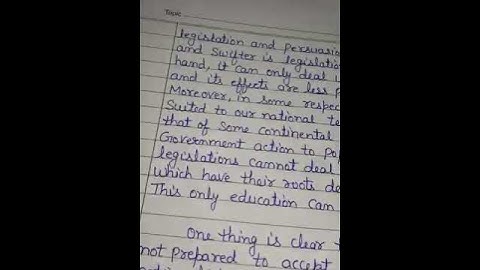 Topic
legislation and persuasio
and Swifter is legislatio
hand, it can only deal
and its effects are less
Moreover, in some respec
Suited to our national te
that of Some continental
Government action to Po
legislations cannot deal
which have their roots de
This only education can
One thing is clear
not prepared to accept